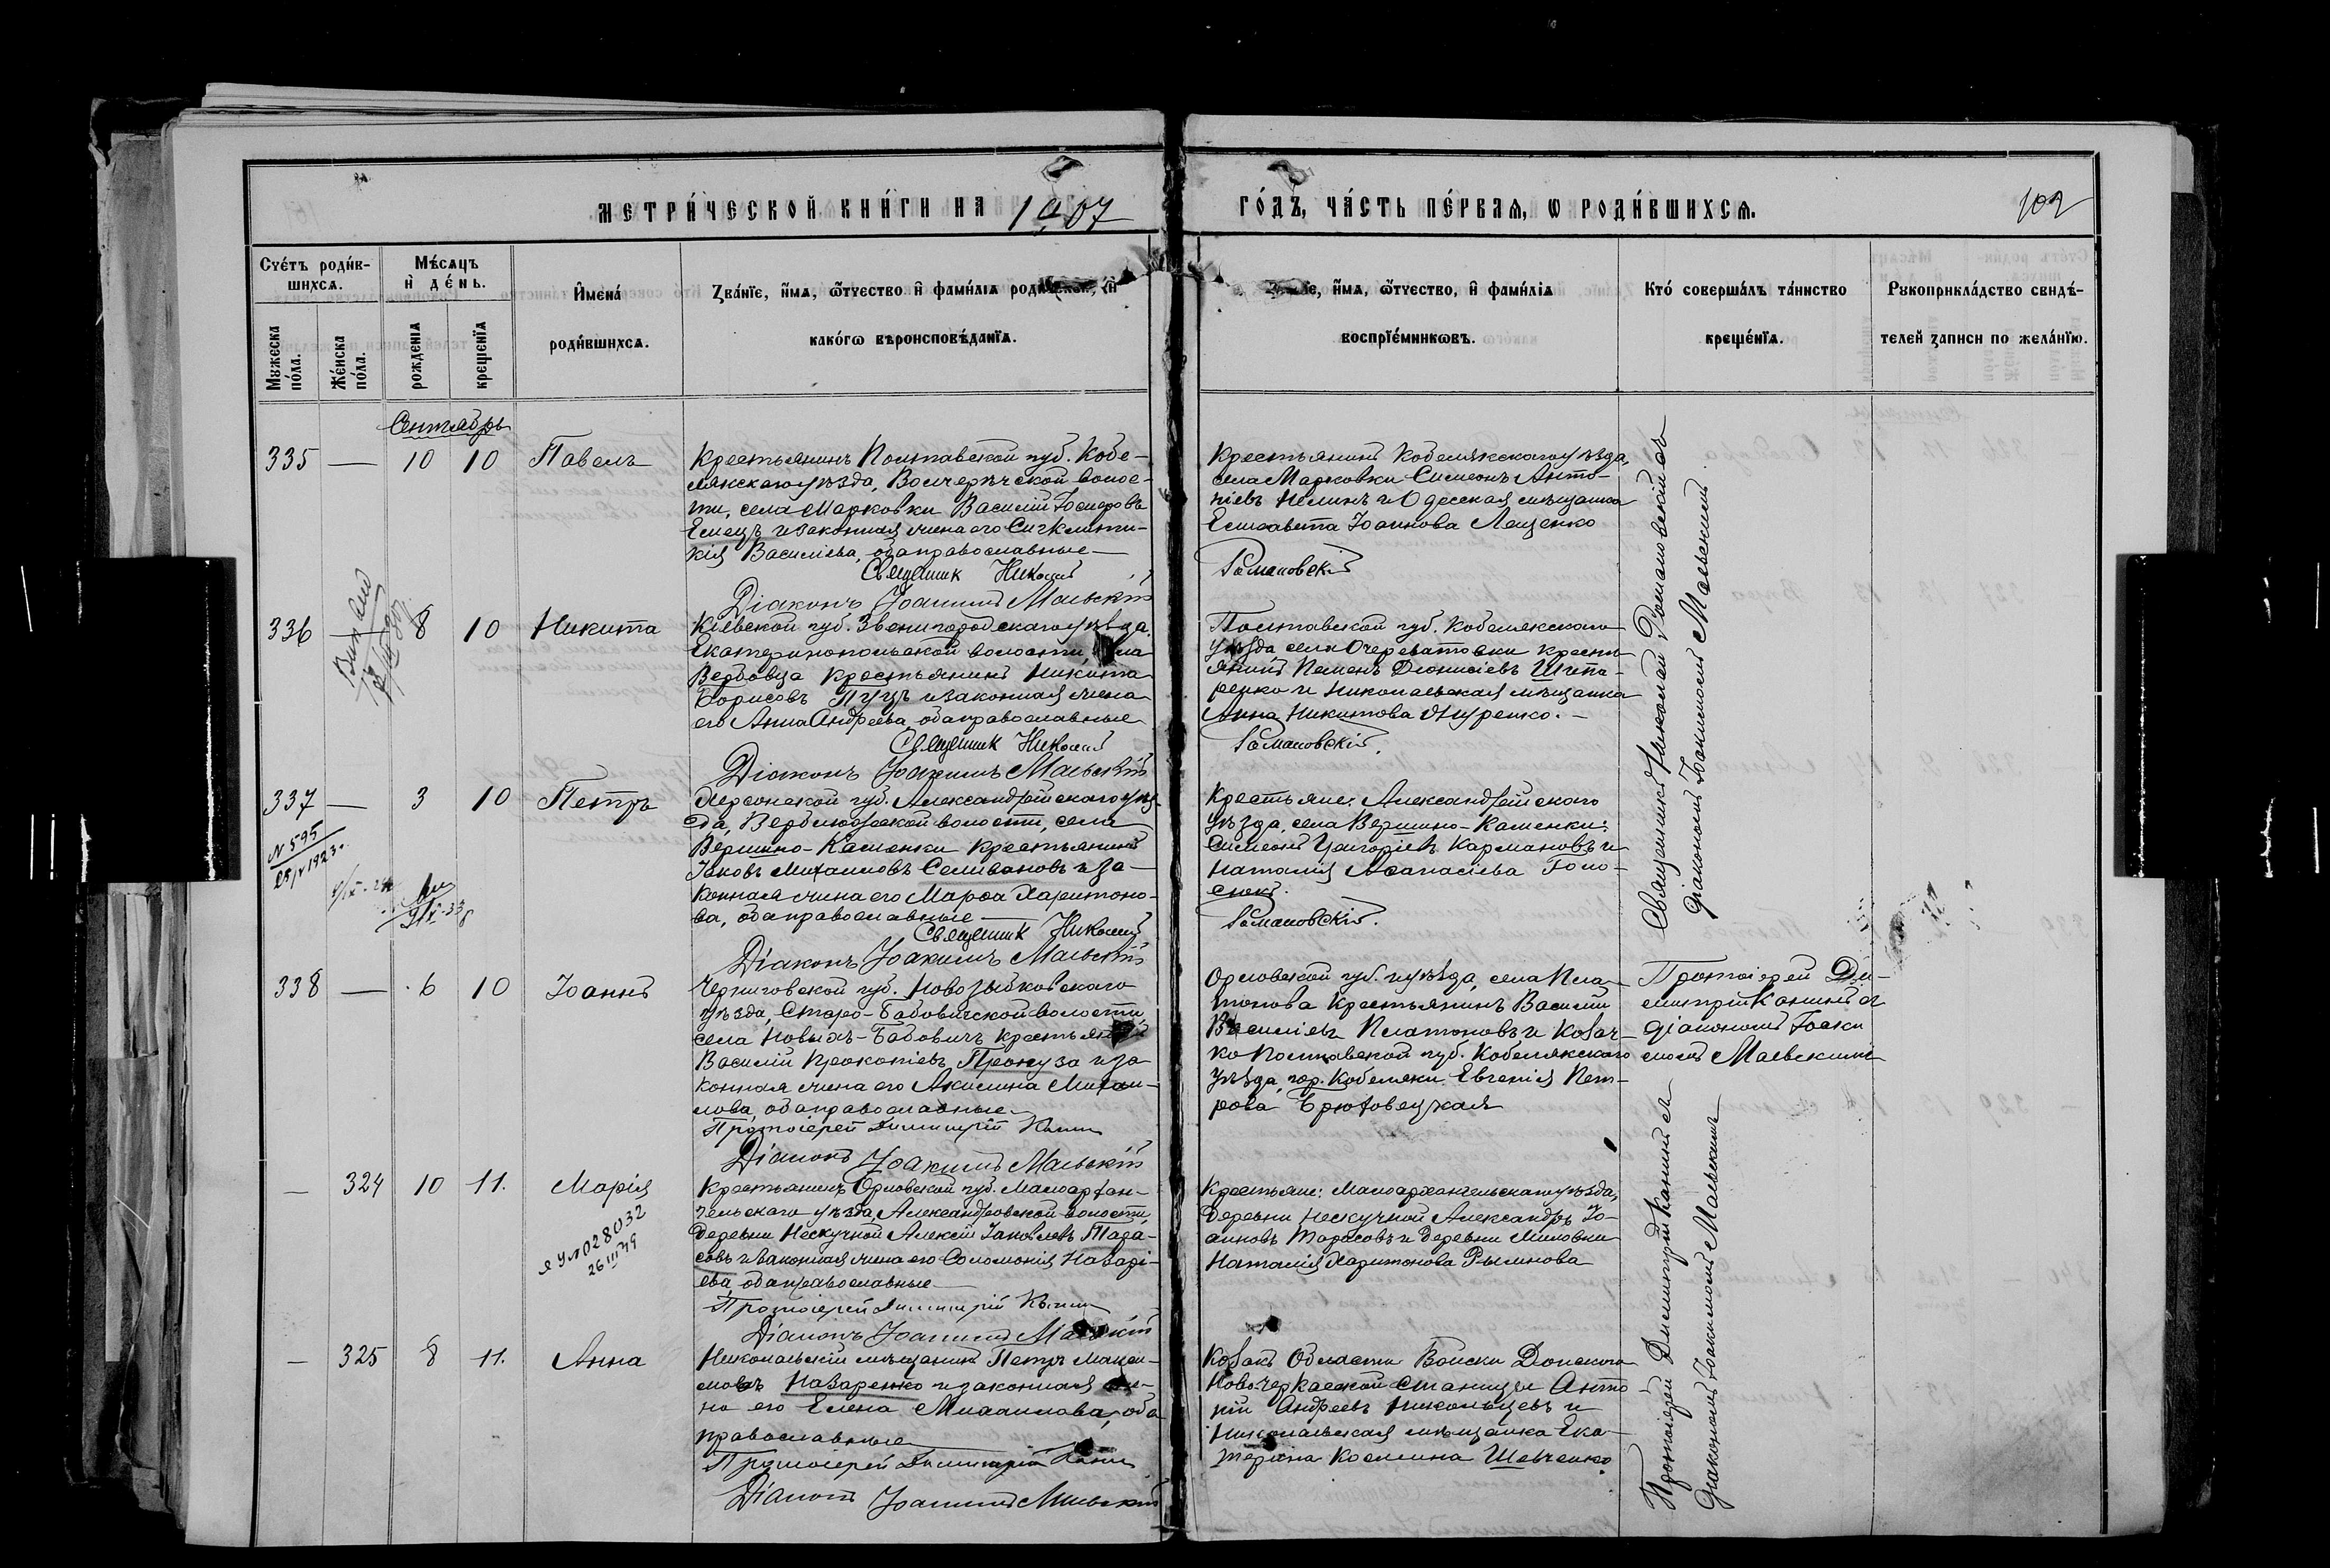 МЕТРИ́ЧЕСКОЙ КНИ́ГИ НА 1907 ГО́ДЪ, ЧА́СТЬ ПЕ́РВАЯ, Ѡ РОДИ́ВШИХСЯ.
102
Сче́тъ роди́в-
шихся.
Мѣ́сяцъ
и҆ де́нь.
Мꙋжеска по́ла.
Же́нска по́ла.
рожденїя
крещенїя
И҆мена́
роди́вшихся.
Зва́нїе, и҆́мя, ѻ҆́тчество и҆ фами́лїя
како́гѡ вѣроисповѣ́данїя.
и҆́мя, ѻ҆́тчество, и҆ фами́лїя
воспрїе́мникѡвъ.
Кто́ соверша́лъ та́инство
креще́нїя.
Рꙋкоприкла́дство свидѣ́-
телей записи по жела́нїю.
Сентябрь
335 — 10 10 Павелъ
Крестьянинъ Полтавской губ. Кобе-
лякскаго уѣзда, волос-
ти, села Марковки Василій
Емецъ и законная жена его Синклити-
кія Васильева, оба православные
Священник Николай Романовскій
Діаконъ Іоакимъ Маевскій
Крестьянинъ Кобелякскаго уѣзда,
села Марковки Симеонъ Анто-
ніевъ и Одесская мѣщанка
Елисавета Іоаннова Лященко
Священникъ Николай Романовскій съ
діакономъ Іоакимомъ Маевскимъ
336 8 10 Никита
Кіевской губ. Звенигородскаго уѣзда,
Екатеринопольской волости, села
Вербовца крестьянинъ Никита
Борисовъ Пуцъ и законная жена
его Анна Андреева, оба православные
Священник Николай Романовскій.
Діаконъ Іоакимъ Маевскій
Полтавской губ. Кобелякскаго
уѣзда села Очереватовки кресть-
янинъ Пименъ Діонисіевъ
и Николаевская мѣщанка
Анна Никитова
337 — 3 10 Петръ
№ 595
1923
Херсонской губ. Александрійскаго уѣз-
да, Верблюжской волости, села
Вершино-Каменки крестьянинъ
Іаковъ Михаиловъ Селивановъ и за-
конная жена его Марѳа Харитоно-
ва, оба православные
Священник Николай Романовскій.
Діаконъ Іоакимъ Маевскій
Крестьяне: Александрійскаго
уѣзда, села Вершино-Каменки:
Симеонъ Григоріевъ Кармановъ и
Наталія Аѳанасіева Голо-
338 — 6 10 Іоаннъ
Черниговской губ. Новозыбковскаго
уѣзда, Старо-Бобовичской волости,
села Новыхъ-Бобовичъ крестьянинъ
Василій Прокопіевъ Прокуза и за-
конная жена его Акилина Михаи-
лова, оба православные
Протоіерей Димитрій Канинъ
Діаконъ Іоакимъ Маевскій
Орловской губ. и уѣзда, села Пла-
тонова крестьянинъ Василій
Васильевъ Платоновъ и козач-
ка Полтавской губ. Кобелякскаго
уѣзда, гор. Кобеляки Евгенія Пет-
рова Брюховецкая
Протоіерей Ди-
митрій Канинъ съ
діакономъ Іоаки-
момъ Маевскимъ
— 324 10 11. Марія
028032
26 III 49
Крестьянинъ Орловской губ. Малоархан-
гельскаго уѣзда, Александровской волости
деревни Нескучной Алексій Іаковлевъ Тара-
совъ и законная жена его Соломонія Назарі-
ева, оба православные
Протоіерей Димитрій Канинъ
Діаконъ Іоакимъ Маевскій
Крестьяне: Малоархангельскаго уѣзда,
деревни Нескучной Александръ Іо-
анновъ Тарасовъ и деревни
Наталія Харитонова
Протоіерей Димитрій Канинъ съ
діакономъ Іоакимомъ Маевскимъ
— 325 8 11. Анна
Николаевскій мѣщанинъ Петръ Макси-
мовъ Назаренко и законная же-
на его Елена Михаилова, оба
православные
Протоіерей Димитрій Канинъ
Діаконъ Іоакимъ Маевскій
Козакъ Области Войска Донского
Новочеркасской станицы Анто-
ній Андреевъ и
Николаевская мѣщанка Ека-
терина Космина Шевченко